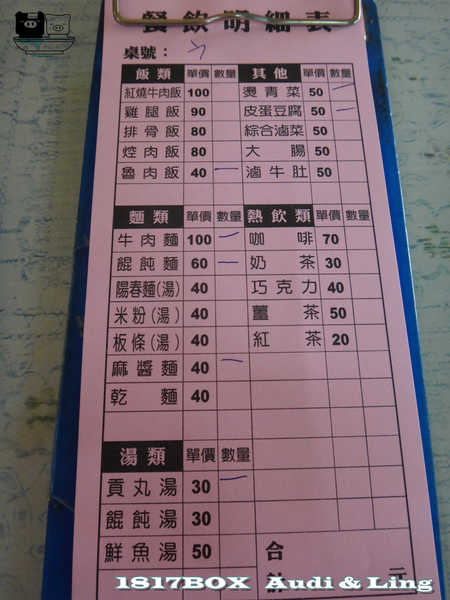 餐飲明細表
桌號：
飯類 單價 數量 其他 單價 數量
紅燒牛肉飯 100 燙青菜 50 一
雞腿飯 90 皮蛋豆腐 50 一
排骨飯 80 綜合滷菜 50
焢肉飯 80 大腸 50
魯肉飯 40 一 滷牛肚 50
麵類 單價 數量 熱飲類 單價 數量
牛肉麵 100 一 咖啡 70
餛飩麵 60 一 奶茶 30
陽春麵(湯) 40 巧克力 40
米粉(湯) 40 薑茶 50
板條(湯) 40 紅茶 20
麻醬麵 40 一
乾麵 40
湯類 單價 數量
貢丸湯 30 一
餛飩湯 30
鮮魚湯 50
合計 元
1817BOX Audi & Ling